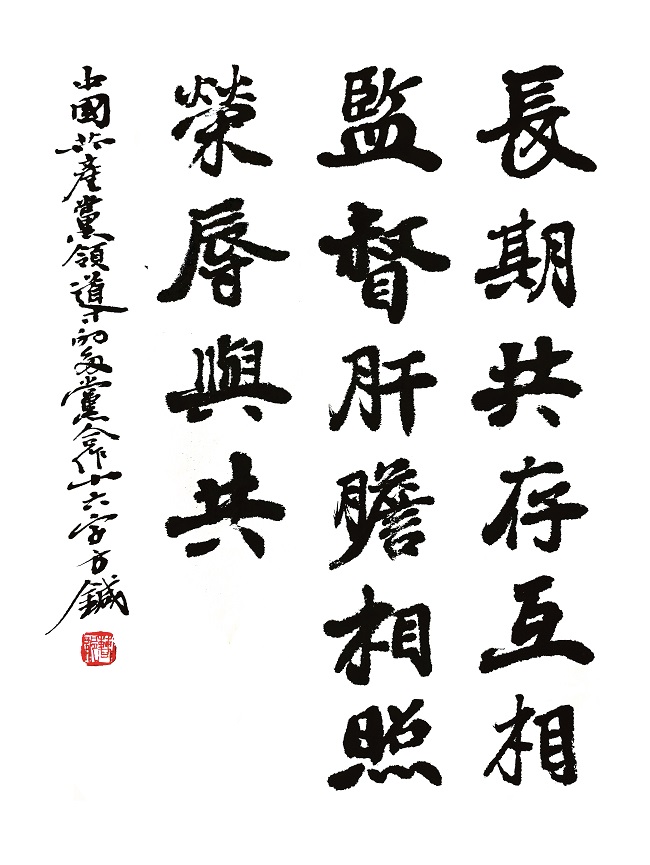 長期共存互相
監督肝膽相照
榮辱與共
中國共產黨領導下的多黨合作十六字方鍼